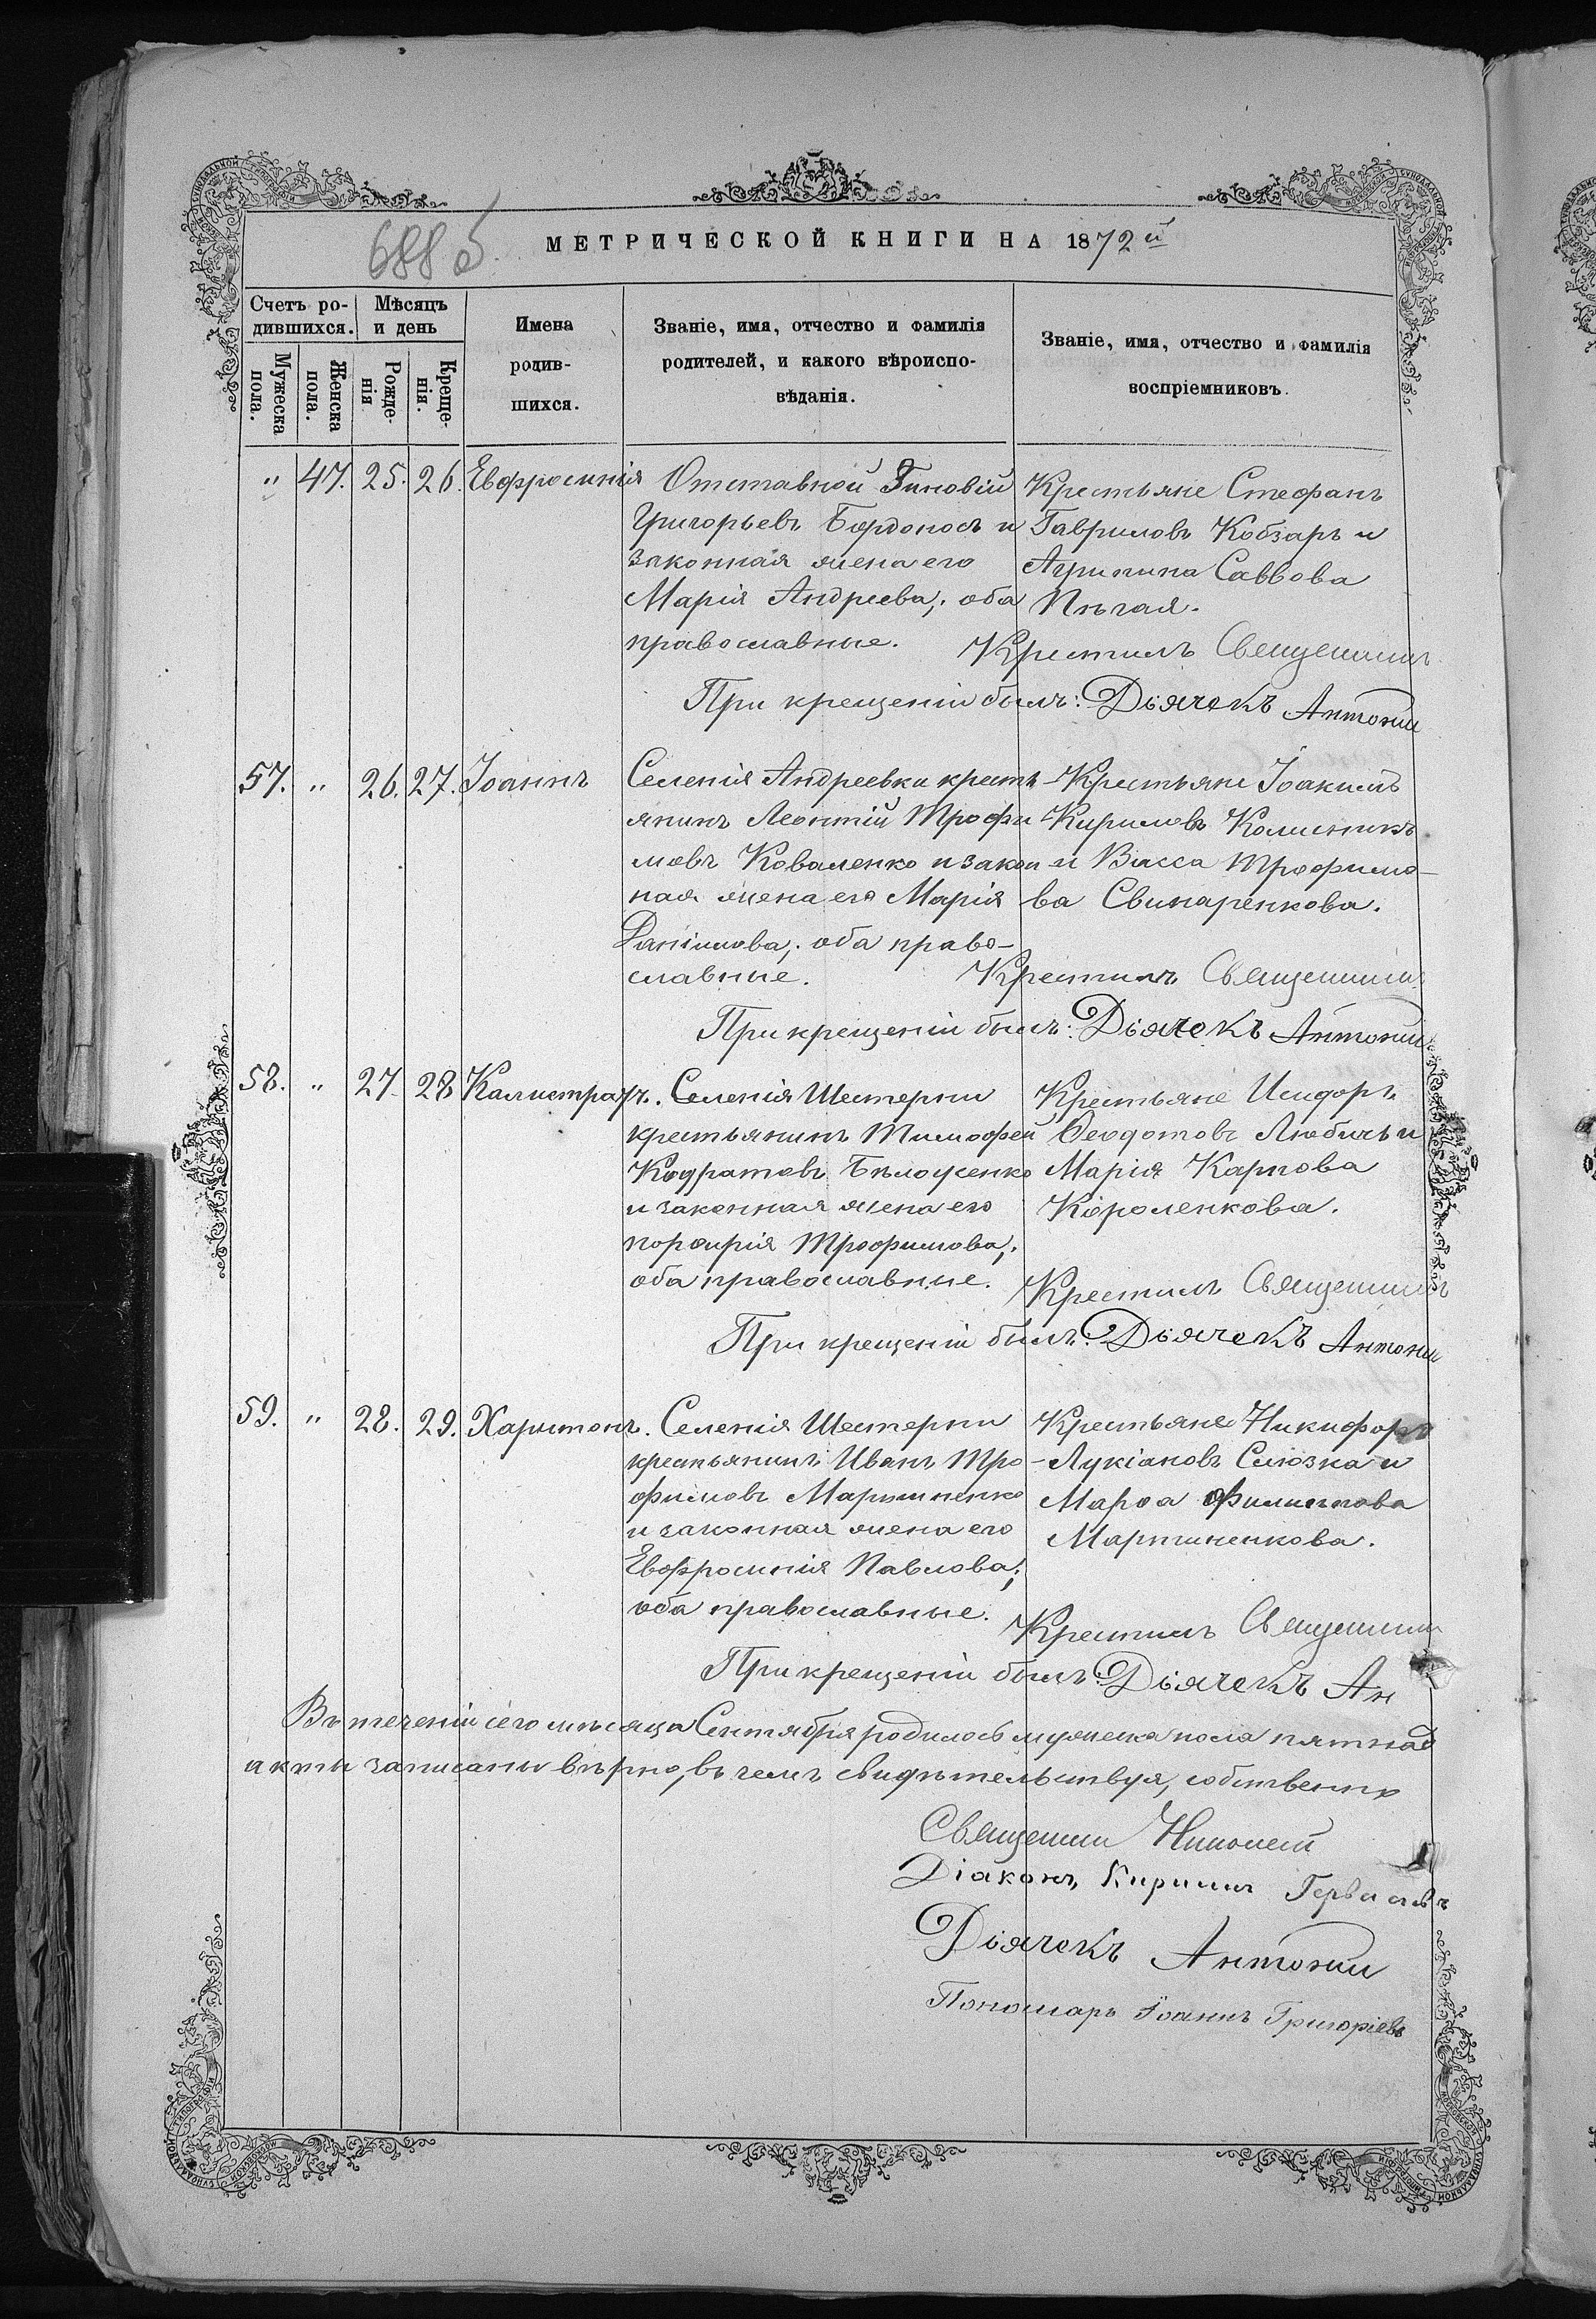 688 б.
МЕТРИЧЕСКОЙ КНИГИ НА 1872й
Счетъ ро-
дившихся.
Мѣсяцъ
и день
Имена
родив-
шихся.
Званіе, имя, отчество и фамилія
родителей, и какого вѣроиспо-
вѣданія.
Званіе, имя, отчество и фамилія
воспріемниковъ.
Мужеска
пола.
Женска
пола.
Рожде-
нія
Креще-
нія.
" 47. 25. 26. Евфросинія
Отставной Зиновій
Григорьевъ Бордоносъ и
законная жена его
Марія Андреева; оба
православные.
Крестьяне Стефанъ
Гавриловъ Кобзарь и
Агрипина Саввова
Пѣгая.
Крестилъ Священникъ
При крещеніи былъ: Дьячекъ Антоній
57. " 26. 27. Іоаннъ
Селенія Андреевки кресть-
янинъ Леонтій Трофи
мовъ Коваленко и закон
ная жена его Марія
Даніилова; оба право-
славные.
Крестьяне Іоакимъ
Кириловъ Колисникъ
и Васса Трофимо-
ва Свинаренкова.
Крестилъ Священникъ
При крещеніи былъ: Діячекъ Антоній
58. " 27. 28 Калистратъ.
Селенія Шестерни
крестьянинъ Тимофей
Кодратовъ Бѣложенко
и законная жена его
порфирія Трофимова;
оба православные.
Крестьяне Исидоръ
Ѳеодотовъ Любичъ и
Марія Карпова
Короленкова.
Крестилъ Священникъ
При крещеніи былъ: Дьячекъ Антоній
59. " 28. 29. Харитонъ.
Селенія Шестерни
крестьянинъ Иванъ Тро-
фимовъ Мартиненко
и законная жена его
Евфросинія Павлова;
оба православные.
Крестьяне Никифоръ
Лукіановъ Слюзка и
Марѳа Филиппова
Мартиненкова.
Крестилъ Священникъ
При крещеніи былъ: Діячекъ Ан
Въ теченіи сего мѣсяца Сентября родилось мужеска пола пятнад
акты записаны вѣрно, въ чемъ свидѣтельствуя, собственно
Священникъ Николай
Діаконъ Кирилъ
Діячекъ Антоній
Пономарь Іоаннъ Григоріевъ